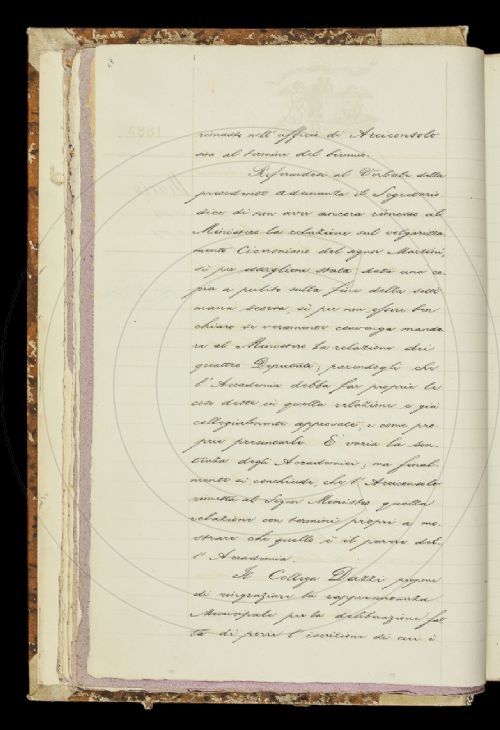 rimasto nell' ufficio di Arciconsolo
sia al termine del biennio.
Riferendosi al Verbale della
precedente adunanza il Segretario
dice di non aver ancora rimesso al
Ministero la relazione sul volgarizza
mento Ciceroniano del signor Martini,
sì per essergliene stata data una co
pia a pulito sulla fine della setti
mana scorsa, sì per non essere ben
chiaro se veramente convenga manda
re al Ministero la relazione dei
quattro Deputati; parendogli che
l' Accademia debba far propria la
cosa detta in quella relazione e già
collegialmente approvata, e come pro
pria presentarla. È varia la sen
tenza degli Accademici; ma final
mente si conchiude, che l' Arciconsolo
rimetta al Signor Ministro quella
relazione con termini propri a mo
strare che quello è il parere del
l' Accademia.
Il Collega Dazzi propone
di ringraziare la rappresentanza
Municipale per la deliberazione fat
ta di porre l' iscrizione di cui è